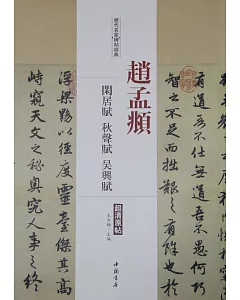 歷代名家碑帖經典
趙孟頫
閑居賦 秋聲賦 吴興賦
超清原帖
中國書店
有道吾不仕無道吾不愚何巧
智之不足而拙艱之有餘也
浮梁黝以徑度靈臺傑其高
峙窺天文之秘奧究人事之終